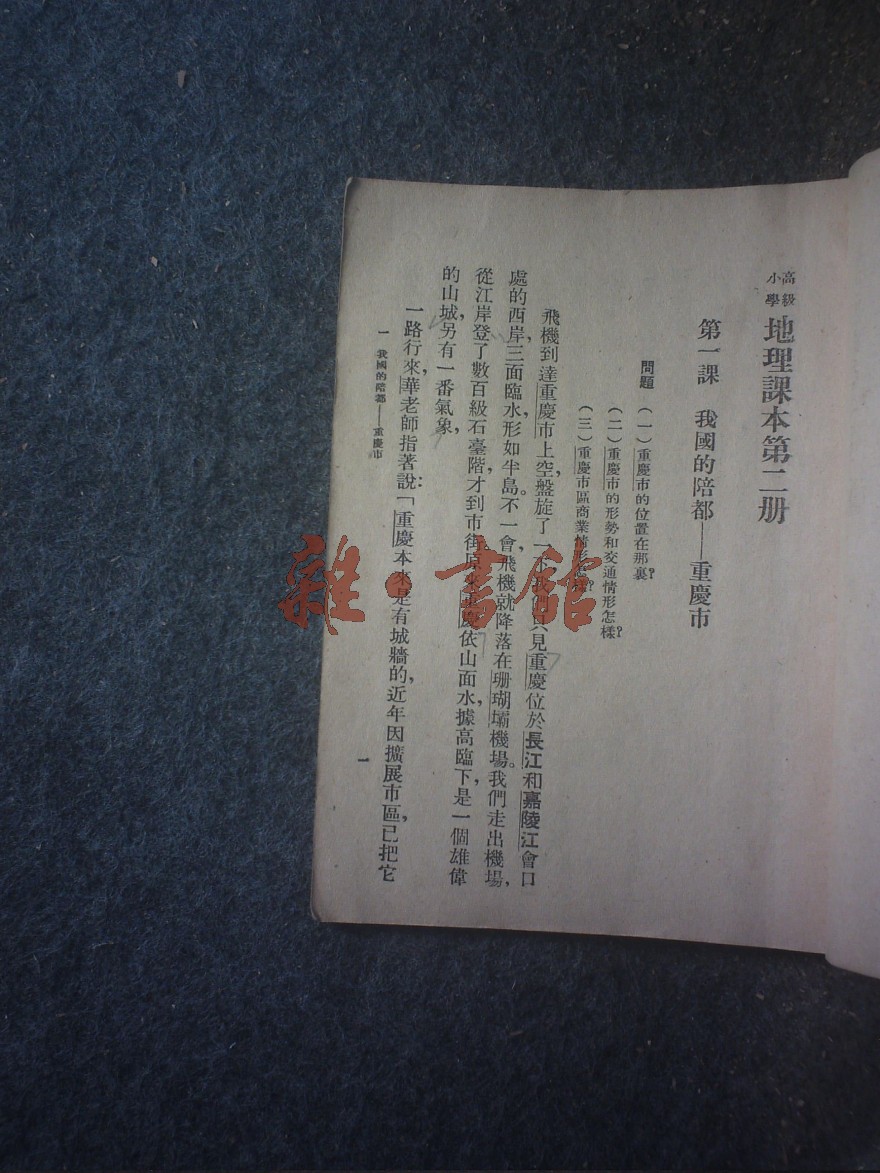 高級
小學
地理課本第二册
第一課 我國的陪都——重慶市
問題 (一)重慶市的位置在那裏?
(二)重慶市的形勢和交通情形怎樣?
(三)重慶市區商業情形怎樣?
飛機到達重慶市上空,盤旋了一下,我們只見重慶位於長江和嘉陵江會口
處的西岸,三面臨水,形如半島。不一會,飛機就降落在珊瑚壩機場。我們走出機場,
從江岸登了數百級石臺階,才到市街。原來重慶依山面水,據高臨下,是一個雄偉
的山城,另有一番氣象。
一路行來,華老師指著說:「重慶本來是有城牆的,近年因擴展市區,已把它
一 我國的陪都——重慶市
一
雜·書館